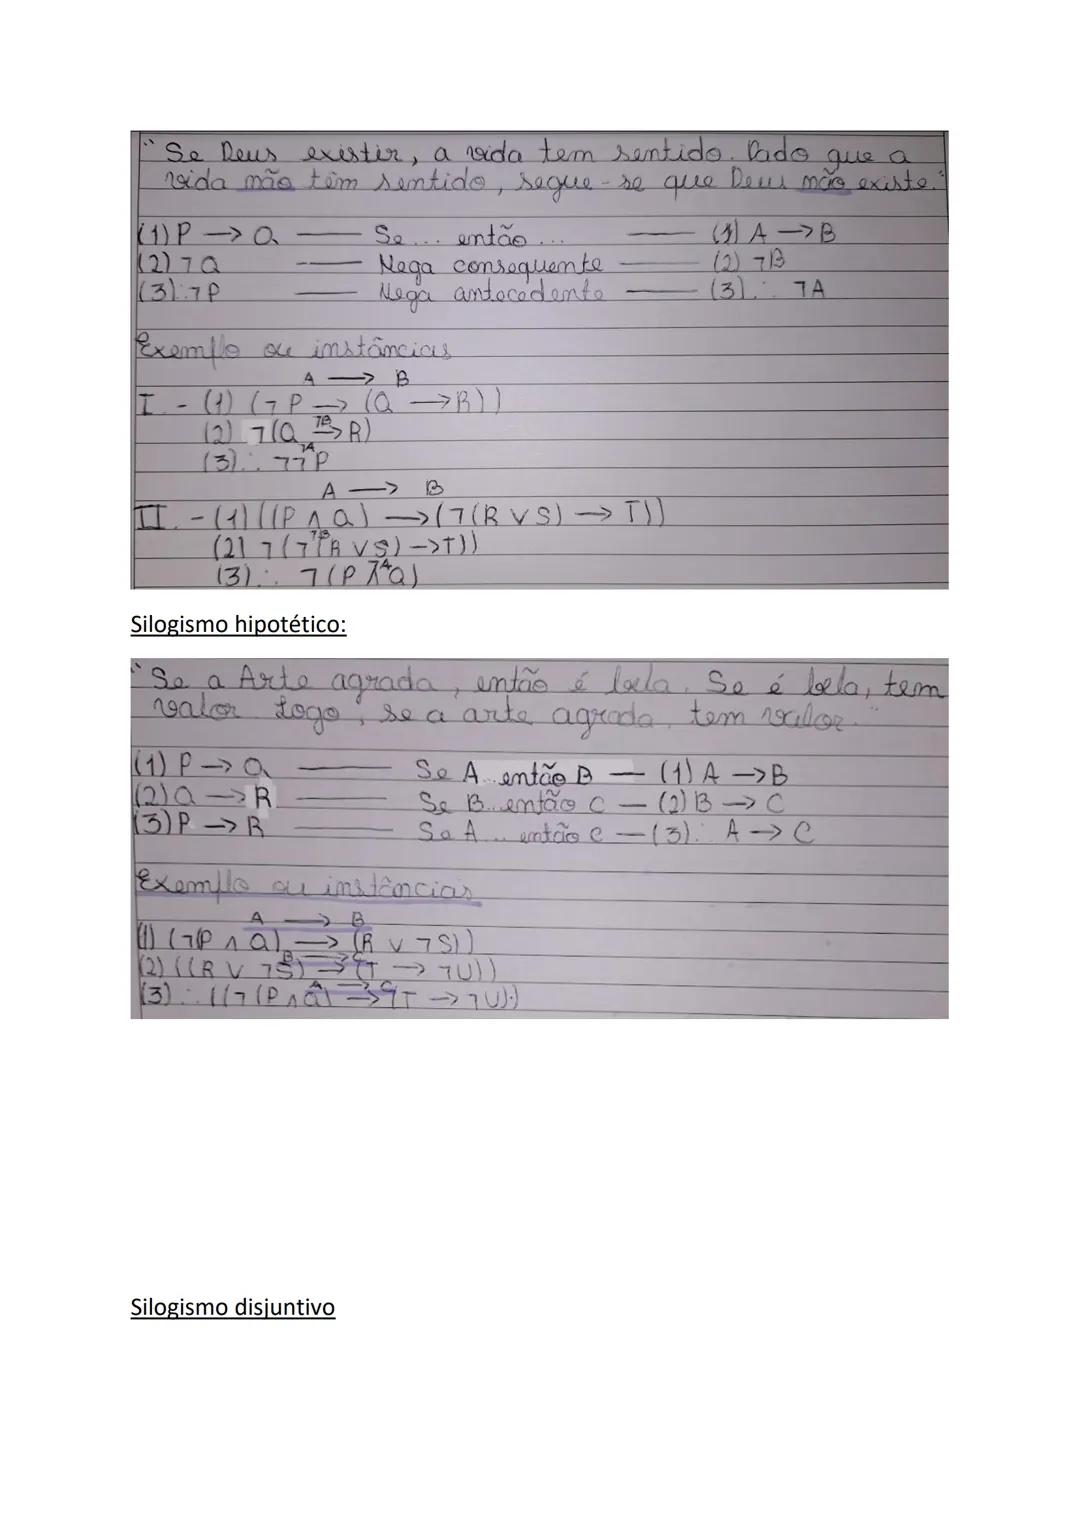 "Se Deus existir, a vida tem sentido. Dado que a
vida não têm sentido, segue-se que Deus não existe."
(1) P → Q — Se... então... — (1) A → B
(2) ¬Q — Nega consequente — (2) ¬B
(3) ∴ ¬P — Nega antecedente — (3) ∴ ¬A
Exemplo ou instâncias
A → B
I - (1) (¬P → (Q → R))
¬B
(2) ¬(Q → R)
¬A
(3) ∴ ¬¬P
A → B
II - (1) ((P ∧ Q) → (¬(R ∨ S) → T))
¬B
(2) ¬(¬(R ∨ S) → T))
¬A
(3) ∴ ¬(P ∧ Q)
Silogismo hipotético:
"Se a Arte agrada, então é bela. Se é bela, tem
valor. Logo, se a arte agrada, tem valor."
(1) P → Q — Se A... então B — (1) A → B
(2) Q → R — Se B... então C — (2) B → C
(3) P → R — Se A... então C — (3) ∴ A → C
Exemplo ou instâncias
A → B
(1) (¬(P ∧ Q) → (R ∨ ¬S))
B → C
(2) ((R ∨ ¬S) → (T → ¬U))
A → C
(3) ∴ ((¬(P ∧ Q) → (T → ¬U))
Silogismo disjuntivo